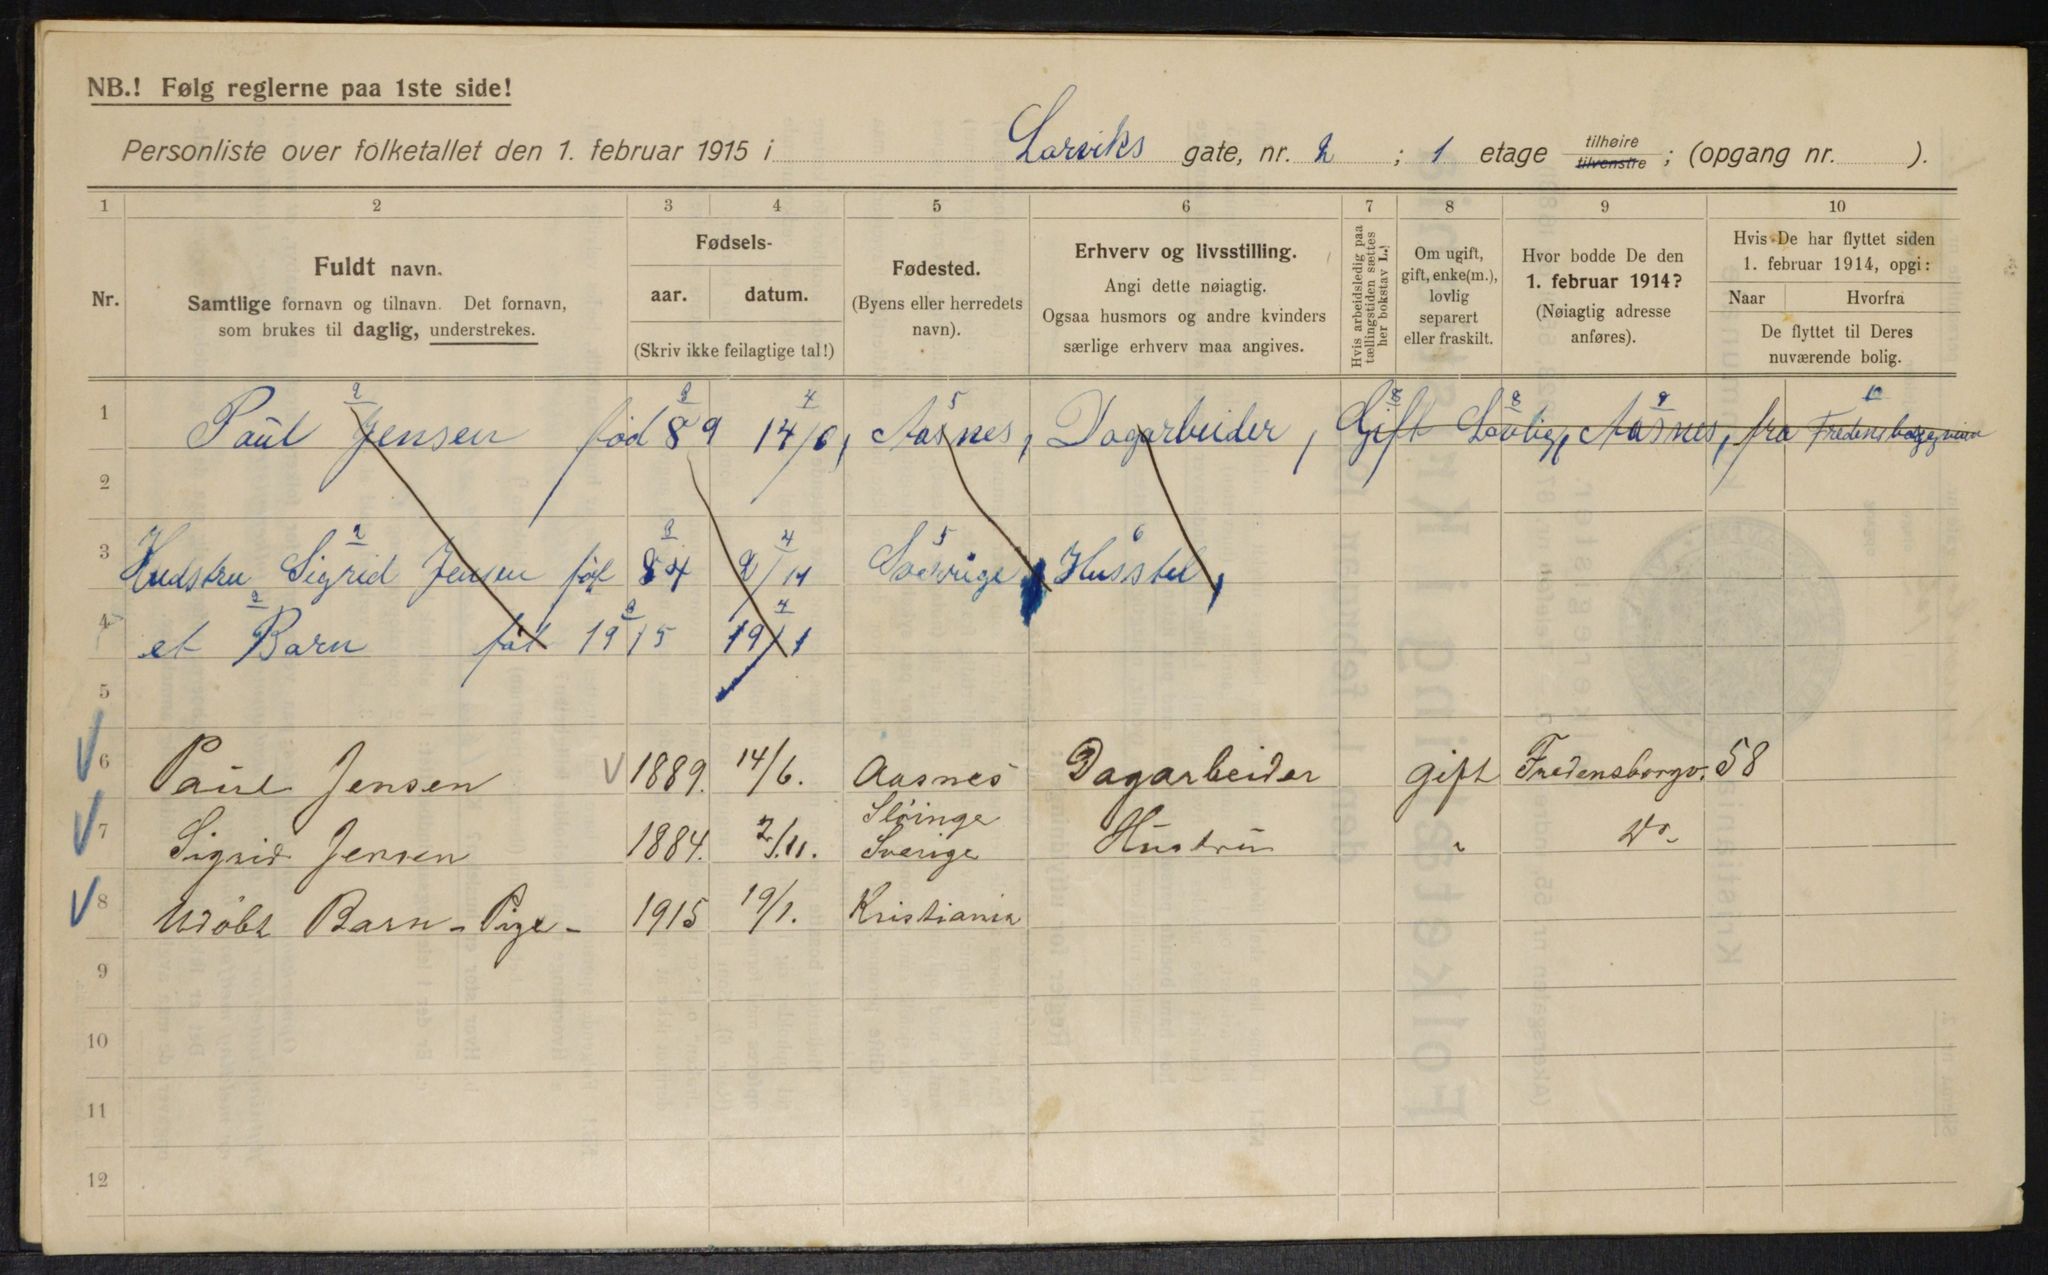 NB.! Følg reglerne paa 1ste side!
Personliste over folketallet den 1. februar 1915 i Larviks gate, nr. 2 ; 1 etage tilhøire tilvenstre ; (opgang nr. ).
1 2 3 4 5 6 7 8 9 10
Nr.
Fuldt navn.
Samtlige fornavn og tilnavn. Det fornavn,
som brukes til daglig, understrekes.
Fødsels-
aar. datum.
(Skriv ikke feilagtige tal!)
Fødested.
(Byens eller herredets
navn).
Erhverv og livsstilling.
Angi dette nøiagtig.
Ogsaa husmors og andre kvinders
særlige erhverv maa angives.
Hvis arbeidsledig paa
tællingstiden sættes
her bokstav L.!
Om ugift,
gift, enke(m.),
lovlig
separert
eller fraskilt.
Hvor bodde De den
1. februar 1914?
(Nøiagtig adresse
anføres).
Hvis De har flyttet siden
1. februar 1914, opgi:
Naar Hvorfra
De flyttet til Deres
nuværende bolig.
2 3 4 5 8 8 9 10
1 Paul Jensen fød 89 14/6, Aasnes, Dagarbeider, Gift Lovlig, Aasnes, fra
2
2 3 4 5 6
3 Hudstru Sigrid Jensen føt 84 2/11 Husstel,
2 3 4
4 et Barn føt 1915 19/1
5
6 Paul Jensen 1889. 14/6. Aasnes Dagarbeider gift Fredensborgv. 58
Sløinge
7 Sigrid Jensen 1884. 2/11. Sverige Hustru " Do
8 Udøbt Barn - Pige - 1915 19/1. Kristiania
9
10
11
12